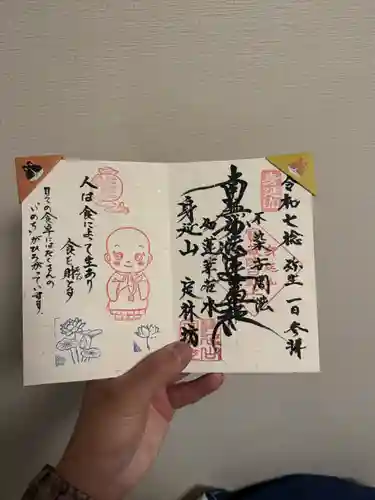 令和七稔 弥生 一日参拝
不染世間法
南無妙法蓮華経
如蓮華在水
身延山
定林坊
人は食によって生あり
食を財です
日々の食卓にはたくさんの
"いのち"がひろがっています。